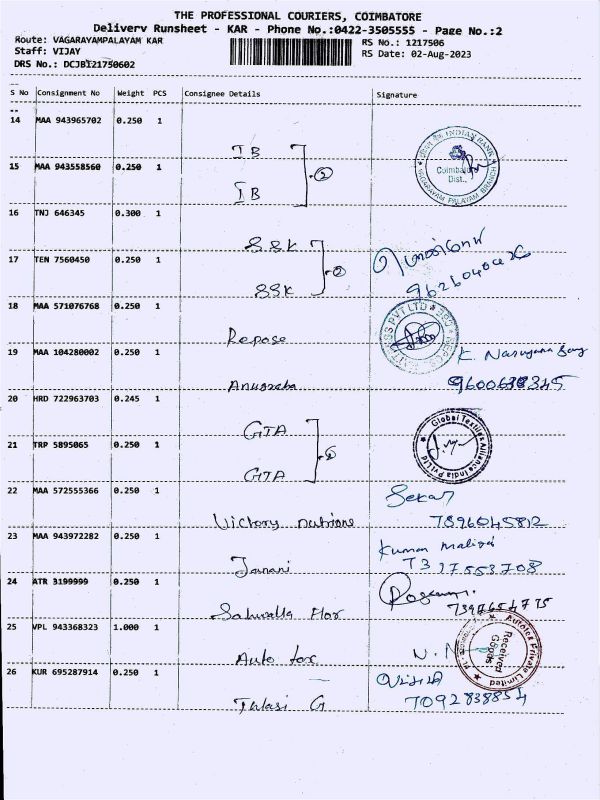 THE PROFESSIONAL COURIERS, COIMBATORE
Delivery Runsheet - KAR - Phone No.:0422-3505555 - Page No.:2
Route: VAGARAYAMPALAYAM KAR
RS No.: 1217506
Staff: VIJAY
RS Date: 02-Aug-2023
DRS No.: DCJBI21750602
S No Consignment No Weight PCS Consignee Details Signature
14 MAA 943965702 0.250 1
IB
INDIAN BANK
Coimbatore
Dist.,
VAGARAYAM PALAYAM BRANCH
15 MAA 943558560 0.250 1
IB
2
16 TNJ 646345 0.300 1
SSK
17 TEN 7560450 0.250 1
SSK
2
18 MAA 571076768 0.250 1
Repose
PVT LTD
19 MAA 104280002 0.250 1
K. Narayana
9600638345
20 HRD 722963703 0.245 1
GTA
Global Textiles Alliance India Pvt Ltd
21 TRP 5895065 0.250 1
GTA
22 MAA 572555366 0.250 1
Sekar
Victory nutrione 7896045812
23 MAA 943972282 0.250 1
Kumar
Janani
24 ATR 3199999 0.250 1
25 VPL 943368323 1.000 1
Auto tex
V.N
Autotex Private Limited
Received
Goods
26 KUR 695287914 0.250 1
Tulasi G 7092838854